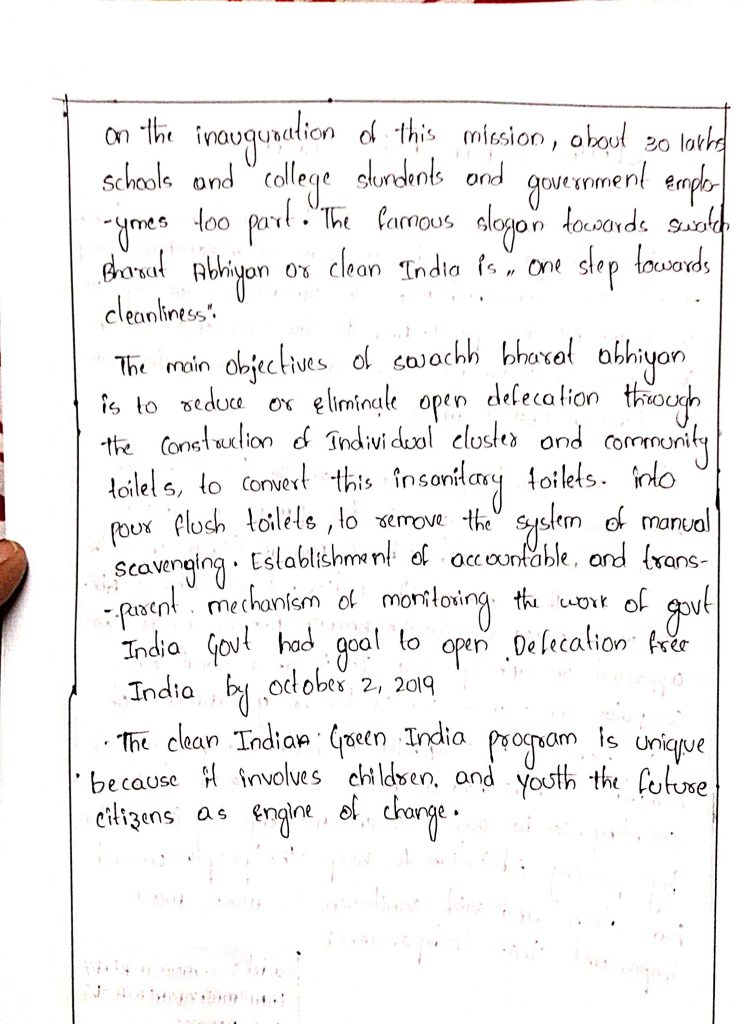 on the inauguration of this mission, about 30 lakhs
schools and college stundents and government emplo-
-ymes too part. The famous slogan towards swatch
Bharat Abhiyan or clean India is „ one step towards
cleanliness".
The main objectives of swachh bharat abhiyan
is to reduce or eliminate open defecation through
the construction of Individual cluster and community
toilets, to convert this insanitary toilets. into
pour flush toilets, to remove the system of manual
scavenging. Establishment of accountable, and trans-
-parent mechanism of monitoring the work of govt
India Govt had goal to open Defecation free
India by october 2, 2019
The clean Indian Green India program is unique
because it involves children, and youth the future
citizens as engine of change.